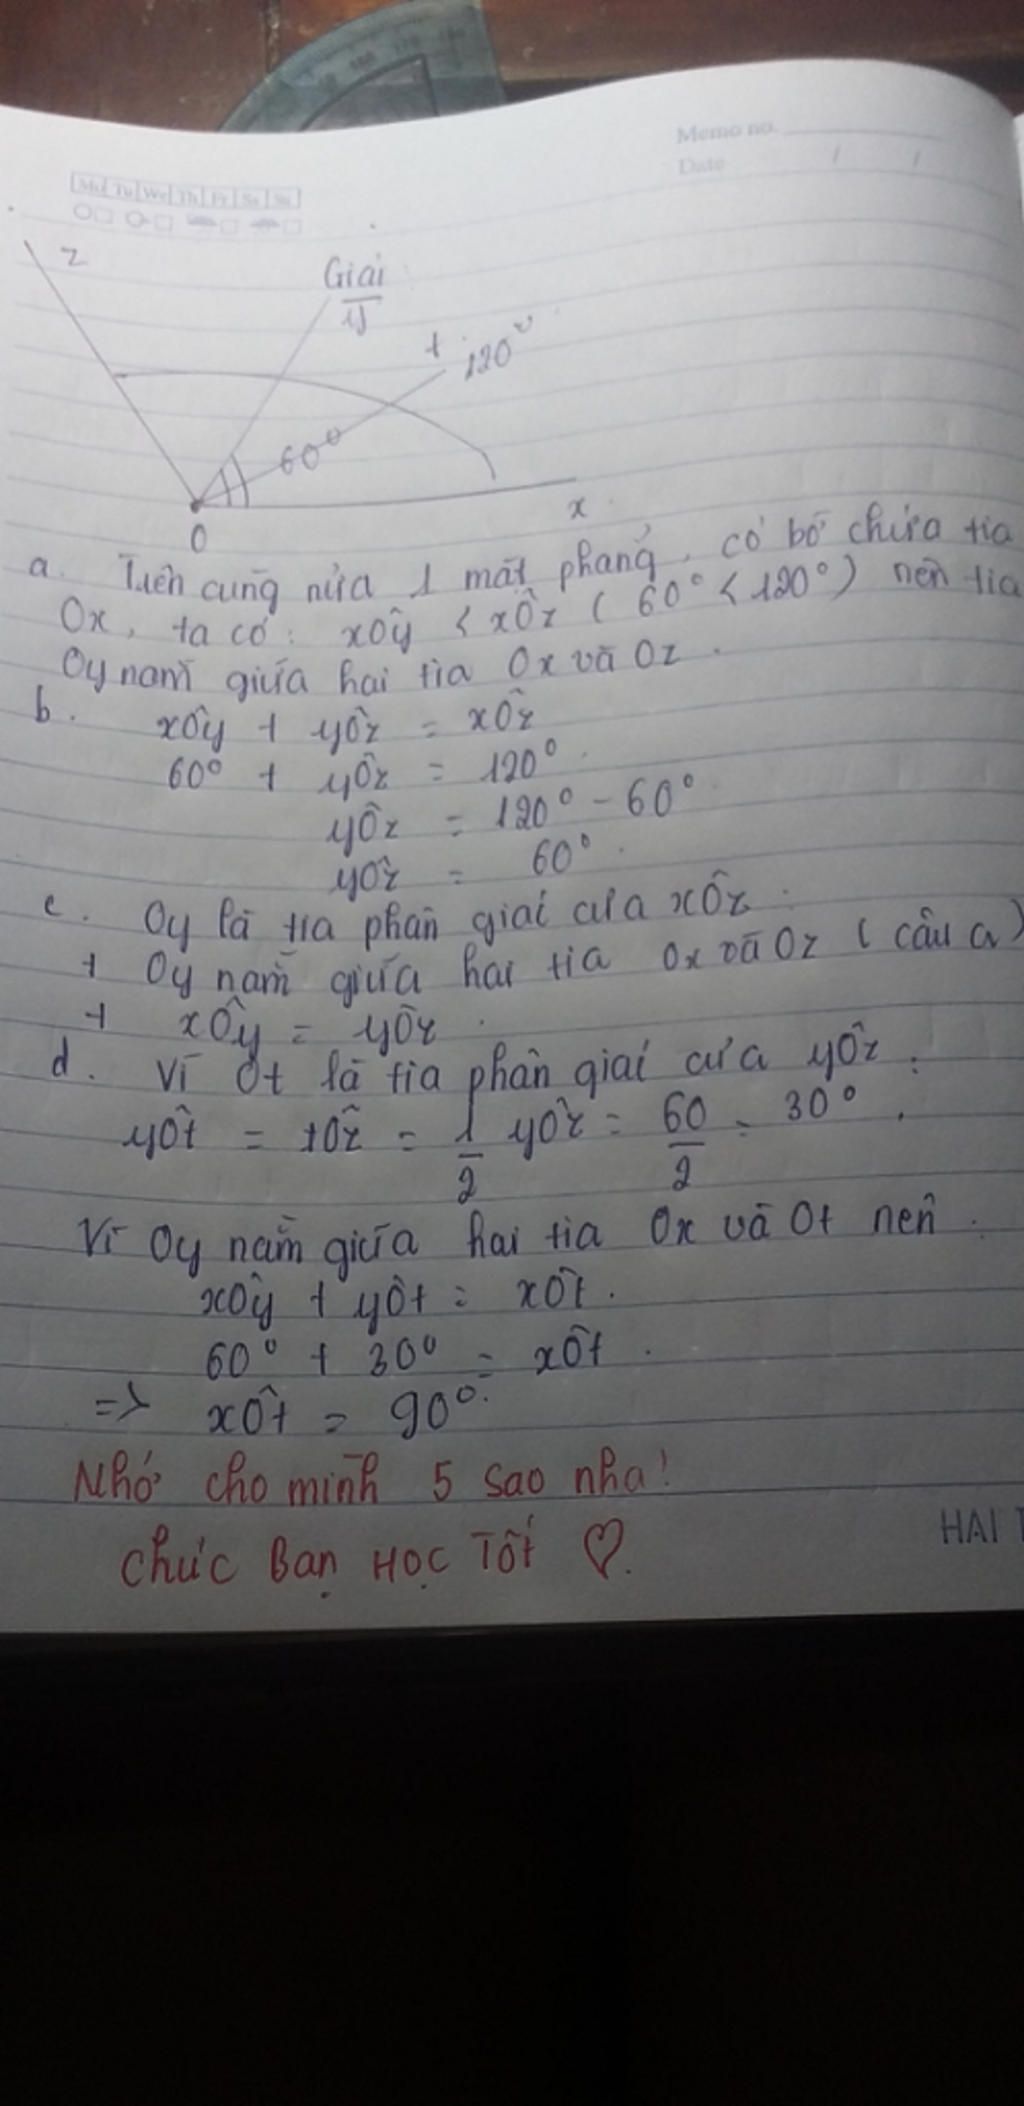 Memo no.
Date / /
Mo Tu We Th Fr Sa Su
z
Giải
y
t
120°
60°
O
x
a. Trên cùng nửa 1 mặt phẳng, có bờ chứa tia
Ox, ta có: xÔy < xÔz (60° < 120°) nên tia
Oy nằm giữa hai tia Ox và Oz.
b. xÔy + yÔz = xÔz
60° + yÔz = 120°.
yÔz = 120° - 60°
yÔz = 60°.
c. Oy là tia phân giác của xÔz:
+ Oy nằm giữa hai tia Ox và Oz (câu a)
+ xÔy = yÔz.
d. Vì Ot là tia phân giác của yÔz:
yÔt = tÔz = 1/2 yÔz = 60/2 = 30°.
Vì Oy nằm giữa hai tia Ox và Ot nên.
xÔy + yÔt = xÔt.
60° + 30° = xÔt.
=> xÔt = 90°.
Nhớ cho mình 5 sao nha!
Chúc Bạn Học Tốt ♡.
HAI